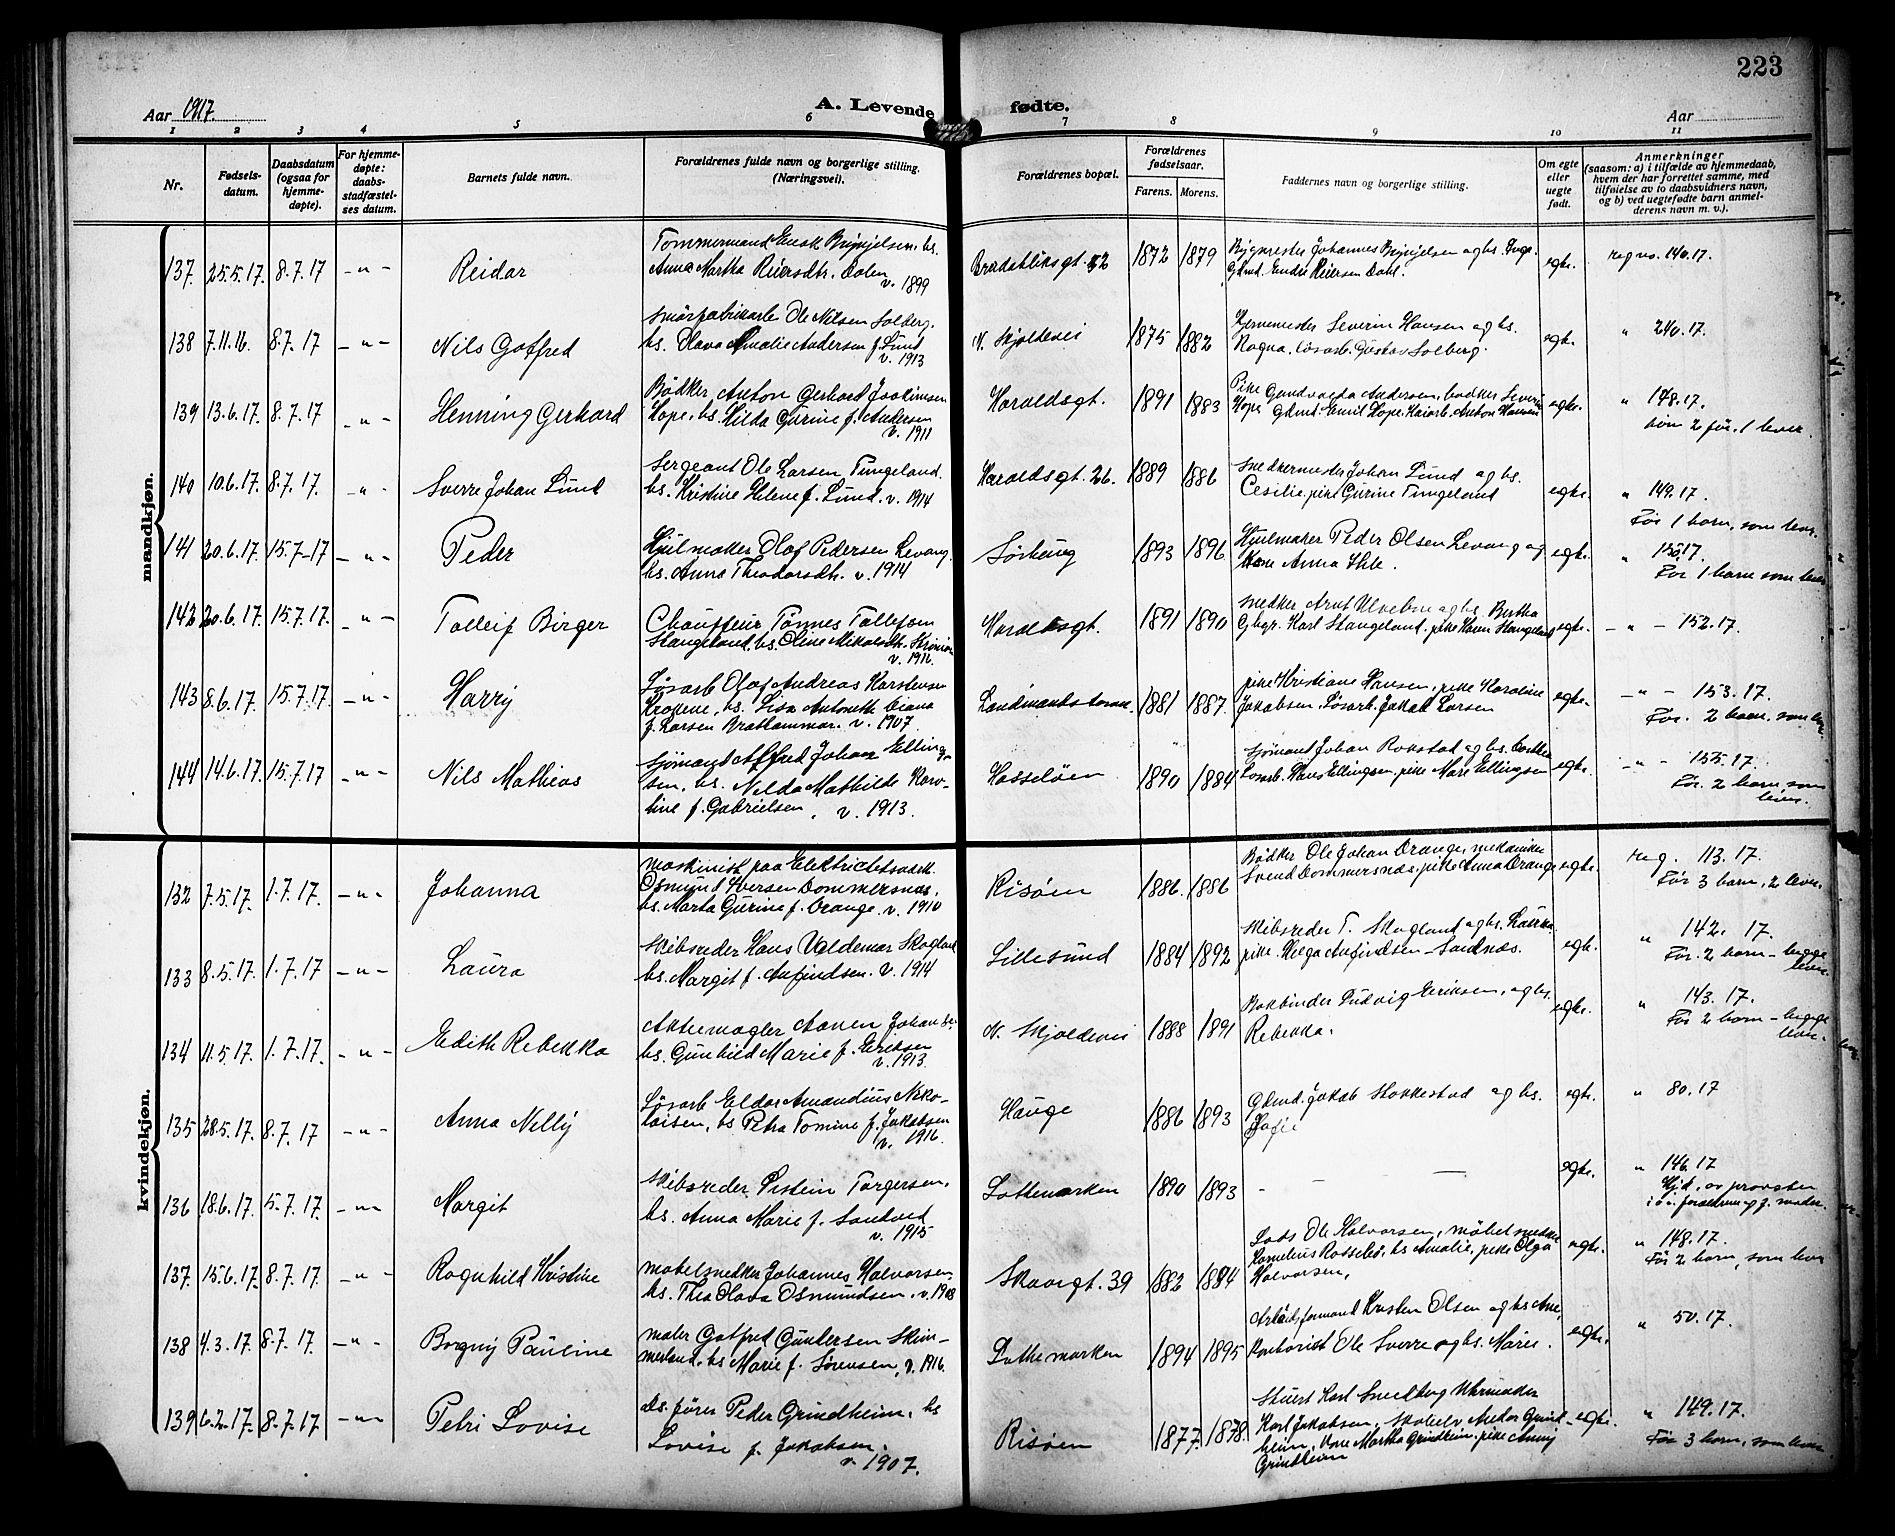 223
Aar 1917.
A. Levende
fødte.
Aar
1 2 3 4 5 6 7 8 9 10 11
Nr.
Fødsels-
datum.
Daabsdatum
(ogsaa for
hjemme-
døpte).
For hjemme-
døpte:
daabs-
stadfæstel-
ses datum.
Barnets fulde navn.
Forældrenes fulde navn og borgerlige stilling.
(Næringsvei).
Forældrenes bopæl.
Forældrenes
fødselsaar.
Farens. Morens.
Faddernes navn og borgerlige stilling.
Om egte
eller
uegte
født.
Anmerkninger
(saasom: a) i tilfælde av hjemmedaab,
hvem der har forrettet samme, med
tilføielse av to daabsvidners navn,
og b) ved uegtefødte barn anmel-
derens navn m. v.).
mandkjøn.
137. 25.5.17. 8.7.17 - " - Reidar
Tømmermand Brynjelsen, hs.
Anna Martha Reiersdtr. Dalen
v. 1899
1872 1879
Johannes Brynjelsen og hs.
Gdmd. Endre Reiersen Dahl.
egte.
reg no. 140.17.
138 7.11.16. 8.7.17 - " - Nils Gotfred
Ole Nilsen Solberg,
hs. Olava Amalie Andersen f. Lund
v. 1913
N. Skjoldevei 1875 1882
Severin Hansen og hs.
Ragna, løsarb. Gustav Solberg.
egte.
" 240.17.
139 13.6.17. 8.7.17 - " - Henning Gerhard
Bødker Anton Gerhard Joakimsen
Hope, hs. Hilda Gurine f. Andersen
v. 1911
Haraldsgt. 1891 1883
Pike Andersen, bødker Severin
Hope Gdmd. Emil Hope, Anton Hansen
egte.
" 148.17.
2 før, 1 lever.
140 10.6.17. 8.7.17. - " - Sverre Johan Lund
Sergeant Ole Larsen Tungeland
hs. Kristine Helene f. Lund. v. 1914
Haraldsgt. 26. 1889 1886
Snedkermester Johan Lund og hs.
Cesilie, pike Gurine Tungeland
egte.
" 149.17.
Før 1 barn, som lever.
141 20.6.17. 15.7-17 - " - Peder
Hjulmaker Olaf Pedersen Levang
hs. Anna Theodorsdtr. v. 1914
Sørhaug 1893 1896
Hjulmaker Peder Olsen Levang og
Kone Anna
egte.
" 150.17.
For 1 barn som lever
142 20.6.17. 15.7.17. - " - Tolleif Birger
Chauffeur Tønnes Tollefsen
Stangeland, hs. Oline Mikalsdtr.
v. 1916.
Haraldsgt. 1891 1890
Snedker, og hs. Bertha
Karl Stangeland, pike Stangeland
egte.
- " - 152.17.
143 8.6.17. 15.7.17. - " - Harry
Løsarb Olaf Andreas Karstensen
hs. Lisa
f. Larsen v. 1907.
1881 1887.
pike Kristiane Hansen, pike Karoline
Jakobsen, Løsarb. Jakob Larsen
egte.
- " - 153.17.
Før. 2 barn, som lev.
144 14.6.17. 15.7.17 - " - Nils Mathias
Sjømand Alfred Johan Elling-
sen, hs. Nilda Mathilde Karo-
line f. Gabrielsen, v. 1913.
Hasseløen 1890 1884
Sjømand Johan Rokstad og hs.
Løsarb. Hans Ellingsen, pike Mari Ellingsen
egte.
- " - 155.17.
Før. 2 barn som
lever.
kvindekjøn.
132 7.5.17. 1.7.17. - " - Johanna
Maskinist paa
Osmund Iversen Dommersnæs,
hs. Marta Gurine f. Orange. v. 1910
Risøen 1886. 1886
Bødker Ole Johan Orange, mekaniker
Svend Dommersnæs, pike Anna Orange
egte.
reg. 113.17.
Før 3 barn, 2 lever.
133 8.5.17. 1.7.17 - " - Laura
Skibsreder Hans Valdemar Skogland
hs. Margit f. Anfindsen. v. 1914
Lillesund 1884 1892
Skibsreder T. Skogland og hs. Laura
pike Helga Anfindsen - Sandnæs.
egte.
" 142. 17.
Før. 2 barn - begge
lever.
134 11.5.17. 1.7.17. - " - Edith Rebekka
hs. Gunhild Marie f. Eriksen
v. 1913.
N. Skjoldevei 1888 1891
Bokbinder Ludvig Eriksen, og hs.
Rebekka.
egte.
" 143. 17.
Før 2 barn - begge
lever.
135 28.5.17. 8.7.17 - " - Anna Nelly
Løsarb Eldar Amandius Niko-
laisen, hs Petra Tomine f. Jakobsen
v. 1916.
Hauge 1886 1893
Gdmd. Jakob Stokkestad og hs.
egte.
" 80.17
136 18.6.17. 5.7.17. - " - Margit
Skibsreder Torgersen,
hs. Anna Marie f. Sandved
v. 1915
Lothemarken 1890 1893
- - —
egte.
" 146.17
Hjd. av provsten
137. 15.6.17. 8.7.17. - " - Ragnhild Kristine
Møbelsnedker Johannes Halvorsen,
hs. Thea Olava Osmundsen. v. 1908
Skaregt. 39 1882 1884
Lods Ole Halvorsen, møbelsnedker
Kornelius Rosseløs, hs Amalie, pike Olga
Halvorsen,
egte.
" 148.17.
Før 2 barn, som lever
138 4.3.17. 8.7.17. - " - Borgny Pauline
Maler Gotfred Gundersen Skim-
merland, hs Marie f. Sørensen, v. 1916.
Lothemarken 1894 1895
Arbeidsformand Kristen Olsen og hs Ane,
Kontorist Ole Sverre og hs. Marie.
egte.
" 50.17.
139 6.2.17. 8.7.17 - " - Petri Lovise
ds.fører Peder Grindheim, hs
Lovise f. Jakobsen.
v. 1907.
Risøen 1877. 1878.
Stuert Karl Snedberg Uhrmaker
Karl Jakobsen, Andor Grind-
heim, Kone Martha Grindheim, pike Anny
Grindheim
egte.
" 149.17.
Før 3 barn, som lever